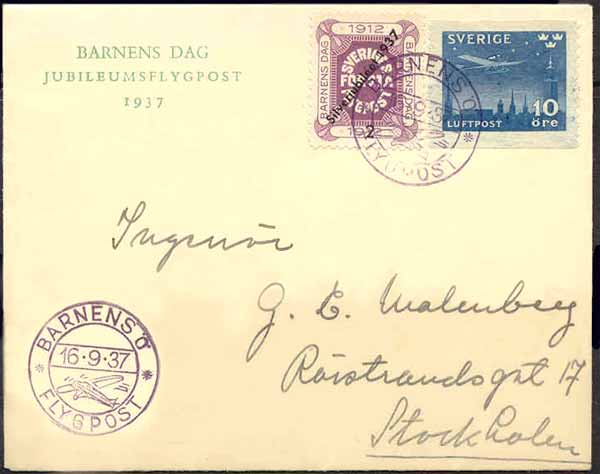 BARNENS DAG
JUBILEUMSFLYGPOST
1937
1912
BARNENS DAG
SVERIGES
FÖRSTA
FLYGPOST
BARNENS DAG
Silverjubileet 1937
2
1912
SVERIGE
10
öre
LUFTPOST
BARNENS Ö
FLYGPOST
Ingenör
G. E. Malenberg
Rörstrandsgat 17
Stockholm
BARNENS Ö
16·9·37
FLYGPOST